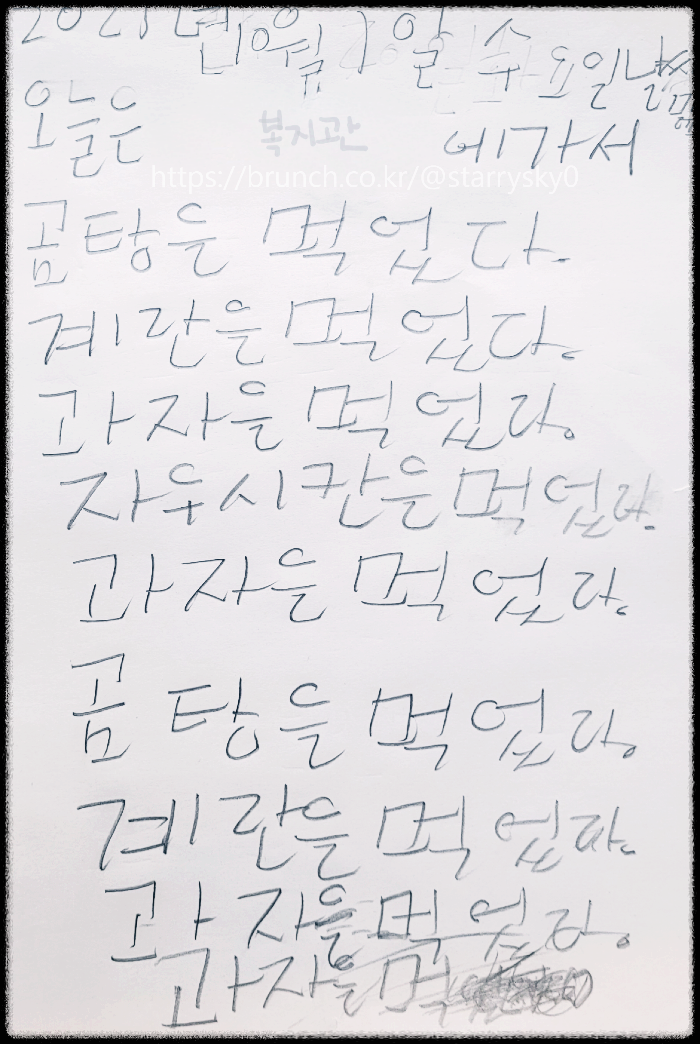 년 10월 7일 수요일 날씨
오늘은 복지관 에가서
https://brunch.co.kr/@starrysky0
곰탕을 먹었다.
계란을 먹었다.
과자를 먹었다.
자두시칸을 먹었다.
과자을 먹었다.
곰탕을 먹었다.
계란을 먹었다.
과자을 먹었다.
과자을 먹